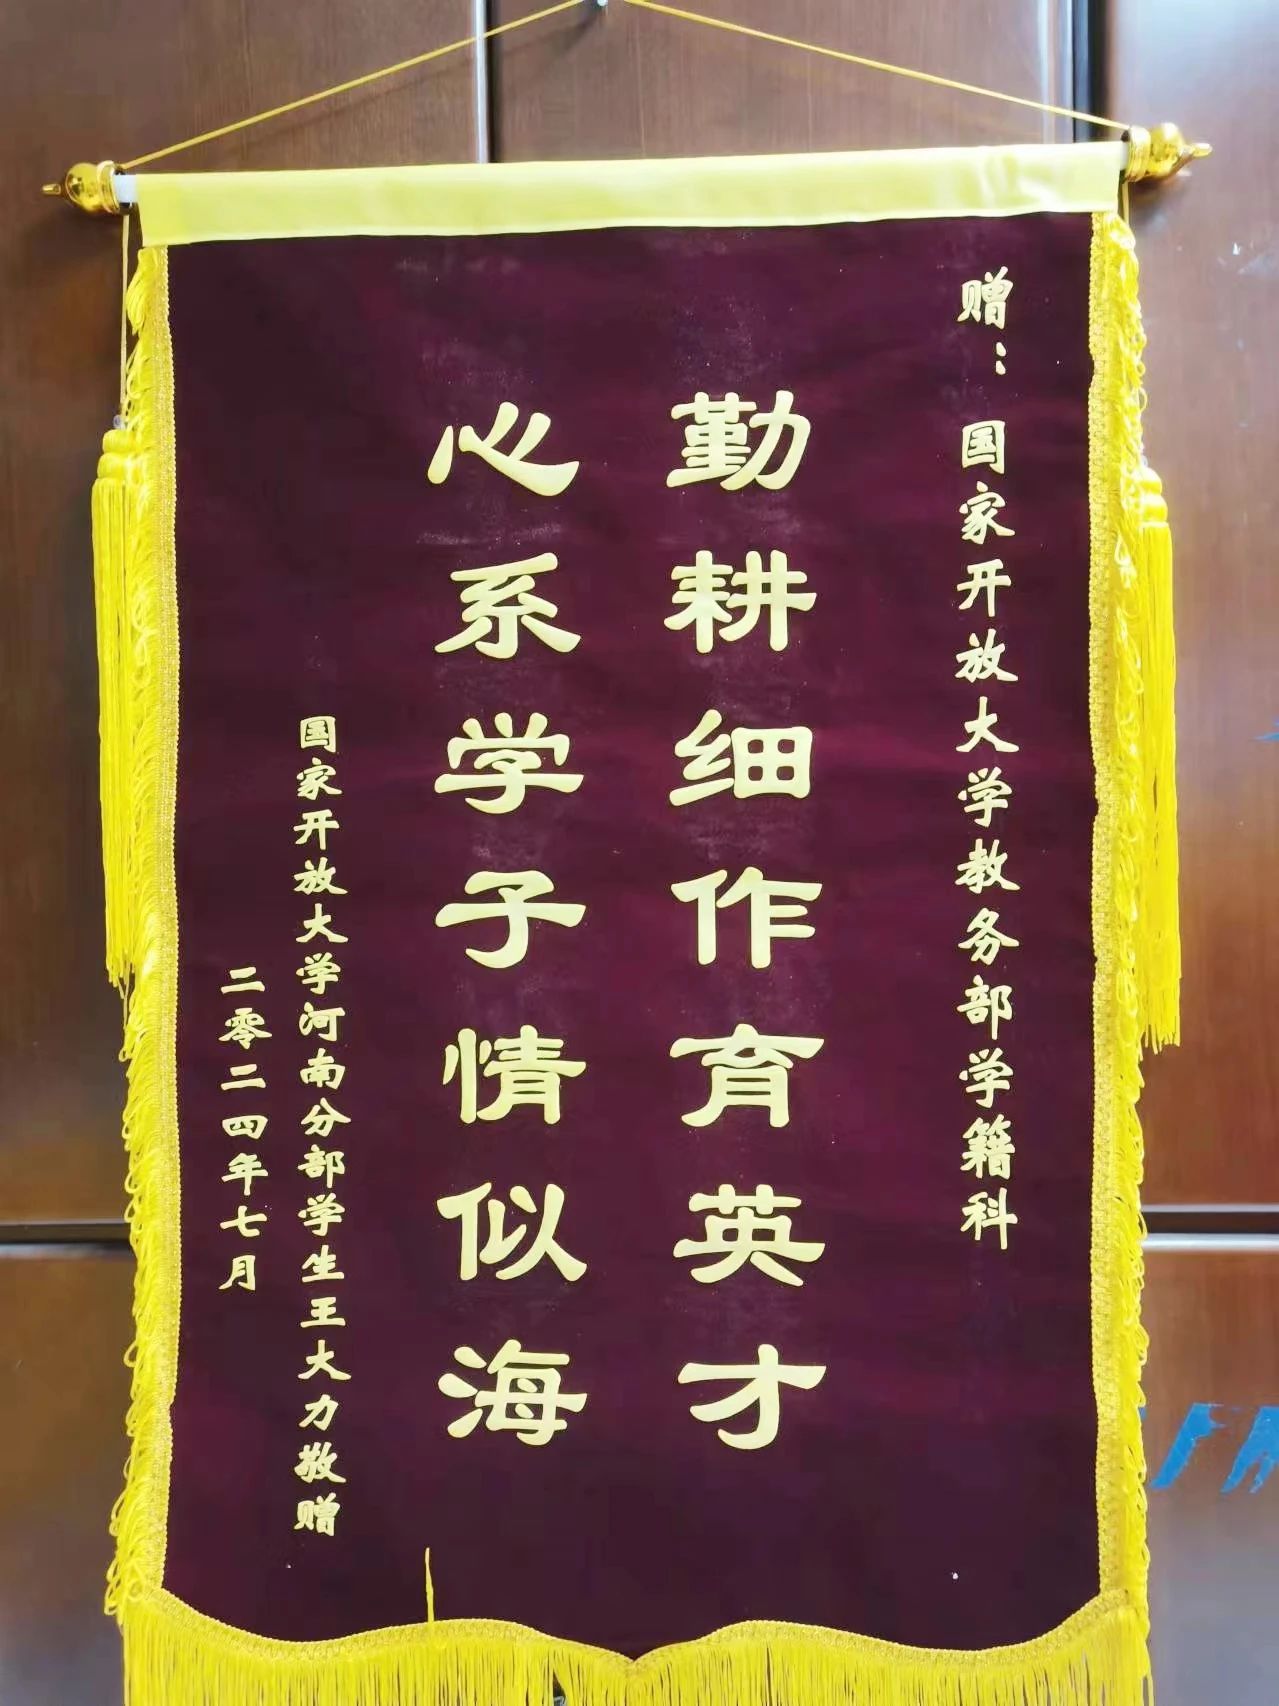 赠：国家开放大学教务部学籍科
勤耕细作育英才
心系学子情似海
国家开放大学河南分部学生王大力敬赠
二零二四年七月